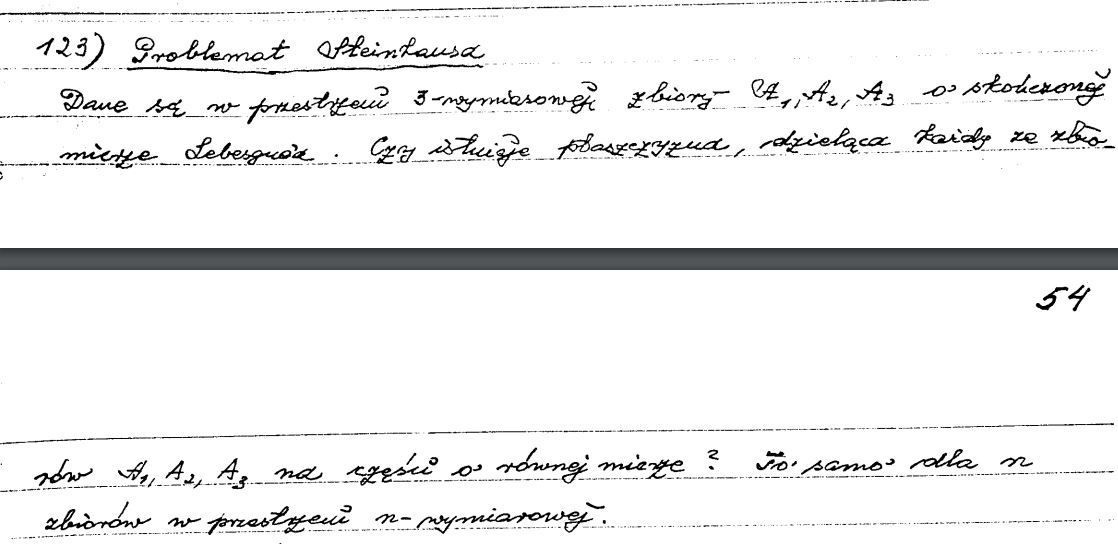 123) Problemat Steinhausa
Dane są w przestrzeni 3-wymiarowej zbiory A₁, A₂, A₃ o skończonej
mierze Lebesgue'a. Czy istnieje płaszczyzna, dzieląca każdy ze zbio-
54
rów A₁, A₂, A₃ na części o równej mierze? To samo dla n
zbiorów w przestrzeni n-wymiarowej.